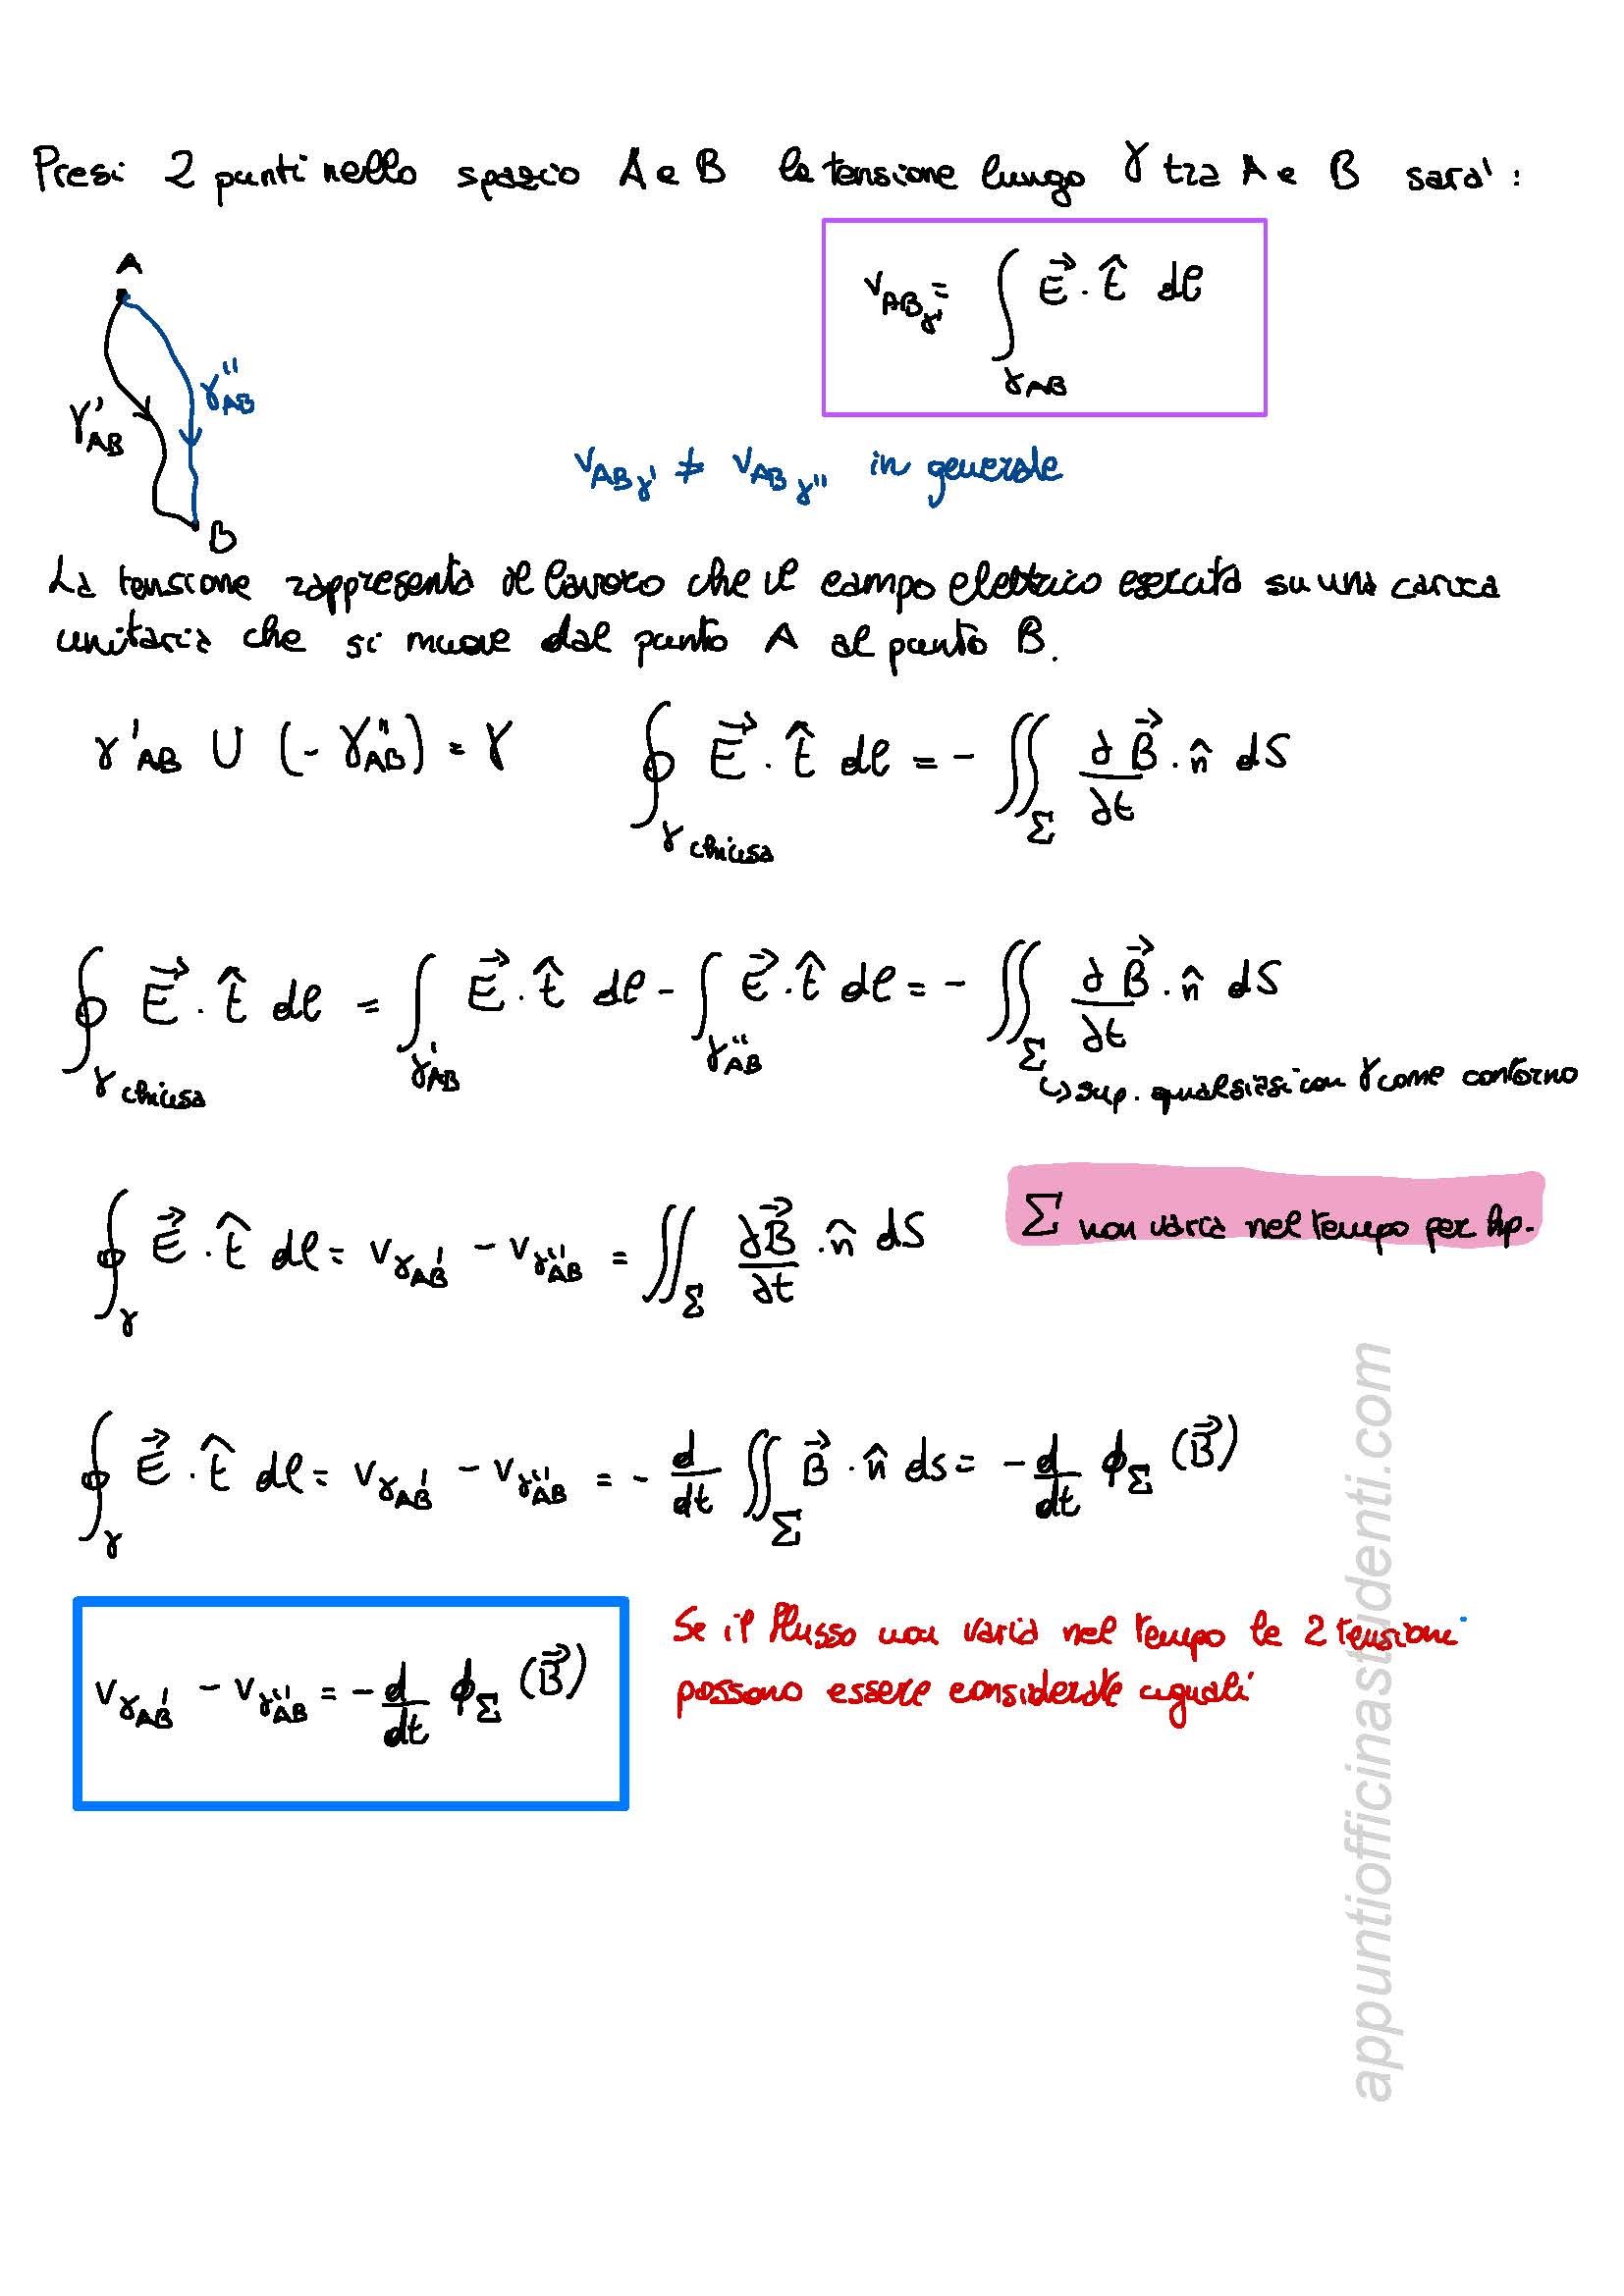 Presi 2 punti nello spazio A e B la tensione lungo γ tra A e B sara' :
A
v_ABγ' = ∫_γAB E⃗ · t̂ dl
γ'_AB
γ''_AB
v_ABγ' ≠ v_ABγ'' in generale
B
La tensione rappresenta il lavoro che il campo elettrico esercita su una carica
unitaria che si muove dal punto A al punto B.
γ'_AB ∪ (- γ''_AB) = γ ∮_γ chiusa E⃗ · t̂ dl = - ∬_Σ ∂B⃗/∂t · n̂ dS
∮_γ chiusa E⃗ · t̂ dl = ∫_γ'AB E⃗ · t̂ dl - ∫_γ''AB E⃗ · t̂ dl = - ∬_Σ ∂B⃗/∂t · n̂ dS
↳ sup. qualsiasi con γ come contorno
∮_γ E⃗ · t̂ dl = v_γ'AB - v_γ''AB = ∬_Σ ∂B⃗/∂t · n̂ dS Σ non varia nel tempo per hp.
∮_γ E⃗ · t̂ dl = v_γ'AB - v_γ''AB = - d/dt ∬_Σ B⃗ · n̂ ds = - d/dt ϕ_Σ (B⃗)
v_γ'AB - v_γ''AB = - d/dt ϕ_Σ (B⃗)
Se il flusso non varia nel tempo le 2 tensioni
possono essere considerate uguali
appuntiofficinastudenti.com